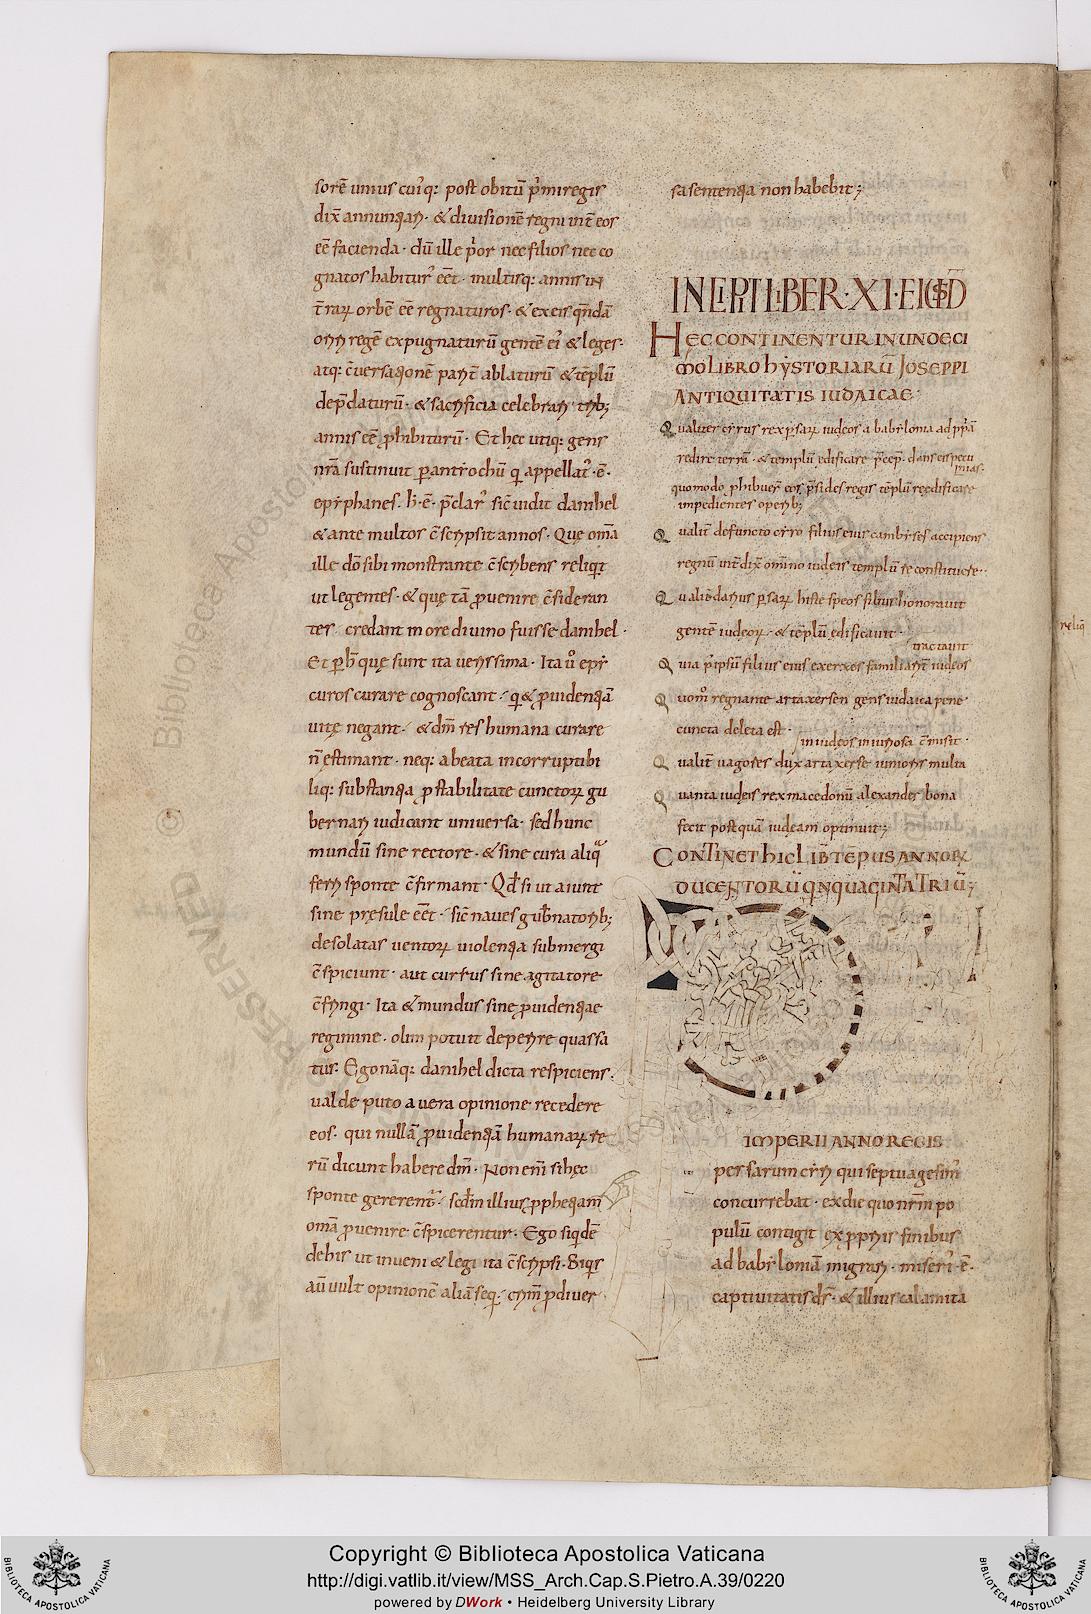 sorē unius cuiꝰq: post obitū p̄mi regis
dix̄ annuntiari· & divisionē regni int̄ eos
eē̄ facienda· dū ille p̄or nec filios nec co
gnatos habitur᾽ eēt· multisq: annis in
t̄raꝝ orbē eē̄ regnaturos· & ex eis q̄ndā
oriri regē expugnaturū gentē ei᾽ & leges·
atq: c̄versationē parit̄ ablaturū & tēplū
dep̄daturū· & sacrificia celebrari trib;
annis eē̄ p̄hibiturū· Et hęc utiq: gens
nr̄a sustinuit p̄ antiochū q̇ appellat᾽·ē·
epiphanes· h̄·ē· p̄clar᾽ sic̄ vidit danihel
& ante multos c̄scripsit annos· Quę om̄a
ille dō sibi monstrante c̄scribens reliq̇t
ut legentes· & quę tā p̄venire c̄sideran
tes credant more divino fuisse danihel·
Et p̄ h̄ quę sunt ita verissima· Ita ū epi
curos curare cognoscant· q̇ & p̄videntiā
vitę negant· & dm̄ res humana curare
n̄ estimant· neq: a beata incorruptibi
liq: substantia p̄ stabilitate cunctoꝝ gu
bernari iudicant universa· sed hunc
mundū sine rectore· & sine cura aliq̄
feri sponte c̄firmant· Qd̄ si ut aiunt
sine pręsule eē̄t· sic̄ naves gub̄natorib;
desolatas ventoꝝ violentia submergi
c̄spiciunt· aut cursus sine agitatore
c̄fringi· Ita & mundus sine p̄videntiae
regimine· olim potuit deperire quassa
tus· Ego nāq: danihel dicta respiciens·
valde puto a vera opinione recedere
eos· qui nullā p̄videntiā humanaꝝ re
rū dicunt habere dm̄· Non eni͂ si hęc
sponte gererent᾽· scdm̄ illius p̄phetiam
om̄a p̄venire c̄spicerentur· Ego siq̇dē
de his ut inveni & legi ita c̄scripsi· Siq̇s
aū vult opinionē aliā seq̇· crim̄ p̄ diver
sa sententia non habebit;
INCIPIT LIBER·XI·EIUSD̄
HĘC CONTINENTUR IN UNDECI
MO LIBRO HYSTORIARŪ JOSEPPI
ANTIQUITATIS IUDAICAE·
Qualiter cirus rex p̄saꝝ iudeos a babilonia ad pp̄ā
redire terrā· & templū edificare p̄cep̄· dans eis pecu
nias·
quomodo p̄hibuer̄ eos p̄sides regis tēplū reedificare
impedientes operib;
Qualit̄ defuncto ciro filius eius cambises accipiens
regnū int̄dix̄ om̄ino iudeis templū restituere··
Qualit̄ darius p̄saꝝ histespeos filius honoravit
gentē iudeoꝝ· & tēplū edificavit·
tractavit
Quia p̄ ipsū filius eius exerxes familiarit̄ iudeos
Quom̄ regnante artaxersen gens iudaica pene
cuncta deleta est·
in iudeos iniuriosa c̄misit·
Qualit̄ vagoses dux artaxerse iunioris multa
Quanta iudęis rex macedonū alexander bona
fecit postquā iudeam optinuit;
CONTINET HIC LIB̄ TĒPUS ANNORꝜ
DUCENTORŪ QINQUAGINTA TRIŪ;
IMPERII ANNO REGIS
persarum ciri qui septuagesim᾽
concurrebat· ex die quo nr̄m po
pulū contigit ex p̄priis finibus
ad babiloniā migrari· misert᾽·ē·
captivitatis ds̄· & illius calamita